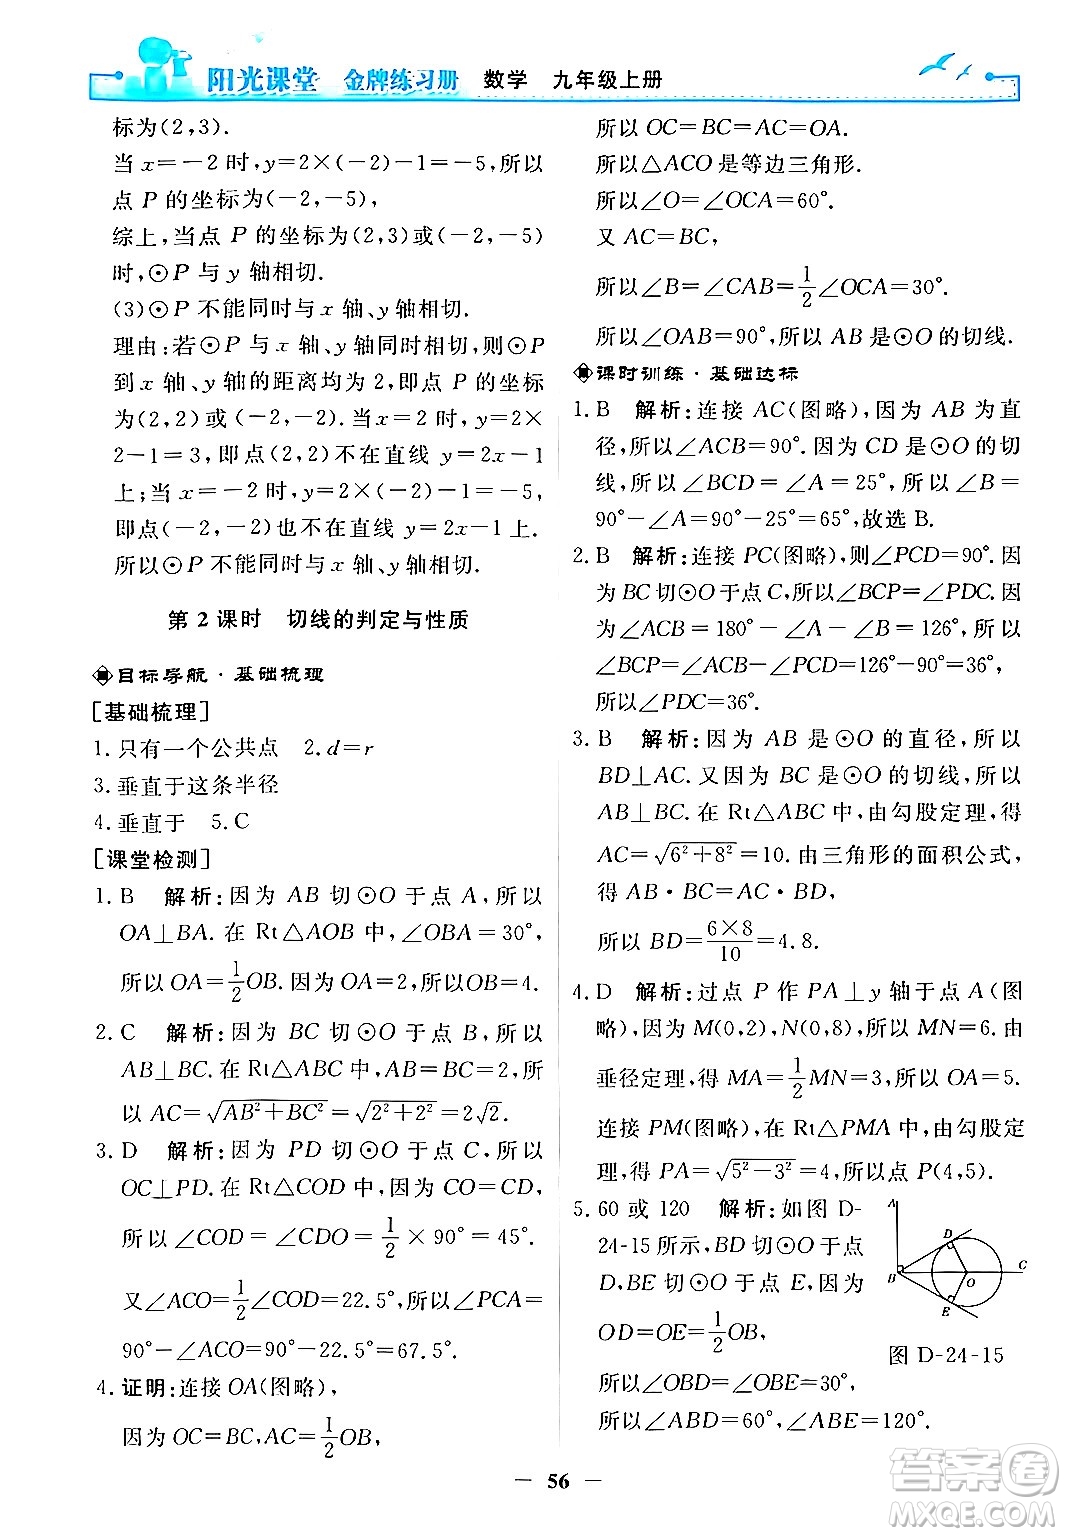 阳光课堂 金牌练习册 数学 九年级上册
标为(2,3).
当 x=-2 时,y=2×(-2)-1=-5,所以
点 P 的坐标为(-2,-5),
综上,当点 P 的坐标为(2,3)或(-2,-5)
时,⊙P 与 y 轴相切.
(3)⊙P 不能同时与 x 轴、y 轴相切.
理由:若⊙P 与 x 轴、y 轴同时相切,则⊙P
到 x 轴、y 轴的距离均为 2,即点 P 的坐标
为(2,2)或(-2,-2).当 x=2 时,y=2×
2-1=3,即点(2,2)不在直线 y=2x-1
上;当 x=-2 时,y=2×(-2)-1=-5,
即点(-2,-2)也不在直线 y=2x-1上.
所以⊙P 不能同时与 x 轴、y 轴相切.
第 2 课时 切线的判定与性质
目标导航·基础梳理
[基础梳理]
1.只有一个公共点 2.d=r
3.垂直于这条半径
4.垂直于 5.C
[课堂检测]
1.B 解析:因为 AB 切⊙O 于点 A,所以
OA⊥BA.在 Rt△AOB 中,∠OBA=30°,
所以 OA=1/2OB.因为 OA=2,所以OB=4.
2.C 解析:因为 BC 切⊙O 于点 B,所以
AB⊥BC.在 Rt△ABC 中,AB=BC=2,所
以 AC=√(AB²+BC²)=√(2²+2²)=2√2.
3.D 解析:因为 PD 切⊙O 于点 C,所以
OC⊥PD.在 Rt△COD 中,因为 CO=CD,
所以 ∠COD=∠CDO=1/2×90°=45°.
又∠ACO=1/2∠COD=22.5°,∠PCA=
90°-∠ACO=90°-22.5°=67.5°.
4.证明:连接 OA(图略),
因为 OC=BC,AC=1/2OB,
所以 OC=BC=AC=OA.
所以△ACO 是等边三角形.
所以∠O=∠OCA=60°.
又 AC=BC,
所以∠B=∠CAB=1/2∠OCA=30°.
所以∠OAB=90°,所以 AB 是⊙O 的切线.
课时训练·基础达标
1.B 解析:连接 AC(图略),因为 AB 为直
径,所以∠ACB=90°.因为 CD 是⊙O 的切
线,所以∠BCD=∠A=25°,所以∠B=
90°-∠A=90°-25°=65°,故选 B.
2.B 解析:连接 PC(图略),则∠PCD=90°.因
为 BC切⊙O于点 C,所以∠BCP=∠PDC.因
为∠ACB=180°-∠A-∠B=126°,所以
∠BCP=∠ACB-∠PCD=126°-90°=36°,
所以∠PDC=36°.
3.B 解析:因为 AB 是⊙O 的直径,所以
BD⊥AC.又因为 BC 是⊙O 的切线,所以
AB⊥BC.在 Rt△ABC 中,由勾股定理,得
AC=√(6²+8²)=10.由三角形的面积公式,
得 AB·BC=AC·BD,
所以 BD=6×8/10=4.8.
4.D 解析:过点 P 作 PA⊥y 轴于点 A(图
略),因为 M(0,2),N(0,8),所以 MN=6.由
垂径定理,得 MA=1/2MN=3,所以 OA=5.
连接 PM(图略),在 Rt△PMA 中,由勾股定
理,得 PA=√(5²-3²)=4,所以点 P(4,5).
5.60 或 120 解析:如图 D-
24-15 所示,BD 切⊙O 于点
D,BE 切⊙O 于点 E,因为
OD=OE=1/2OB,
所以∠OBD=∠OBE=30°,
所以∠ABD=60°,∠ABE=120°.
A
D
B
O
C
E
图 D-24-15
— 56 —
答案圈
MXQE.COM